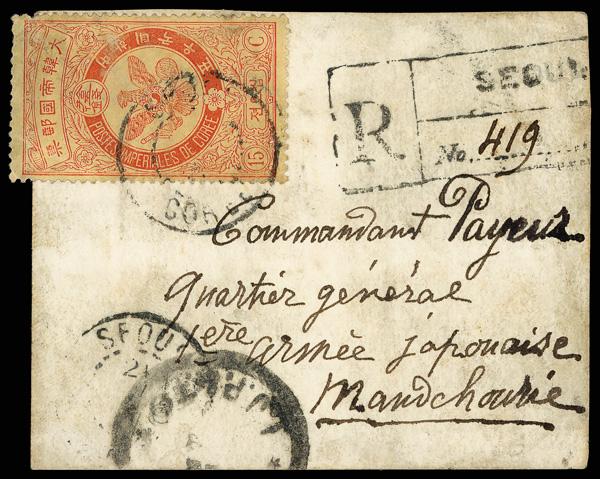 大韓帝國郵票
POSTES IMPERIALES DE COREE
15
C
SEOUL
R
No. 419
Commandant Payeur
Quartier général
1ère armée japonaise
Mandchourie
SEOUL